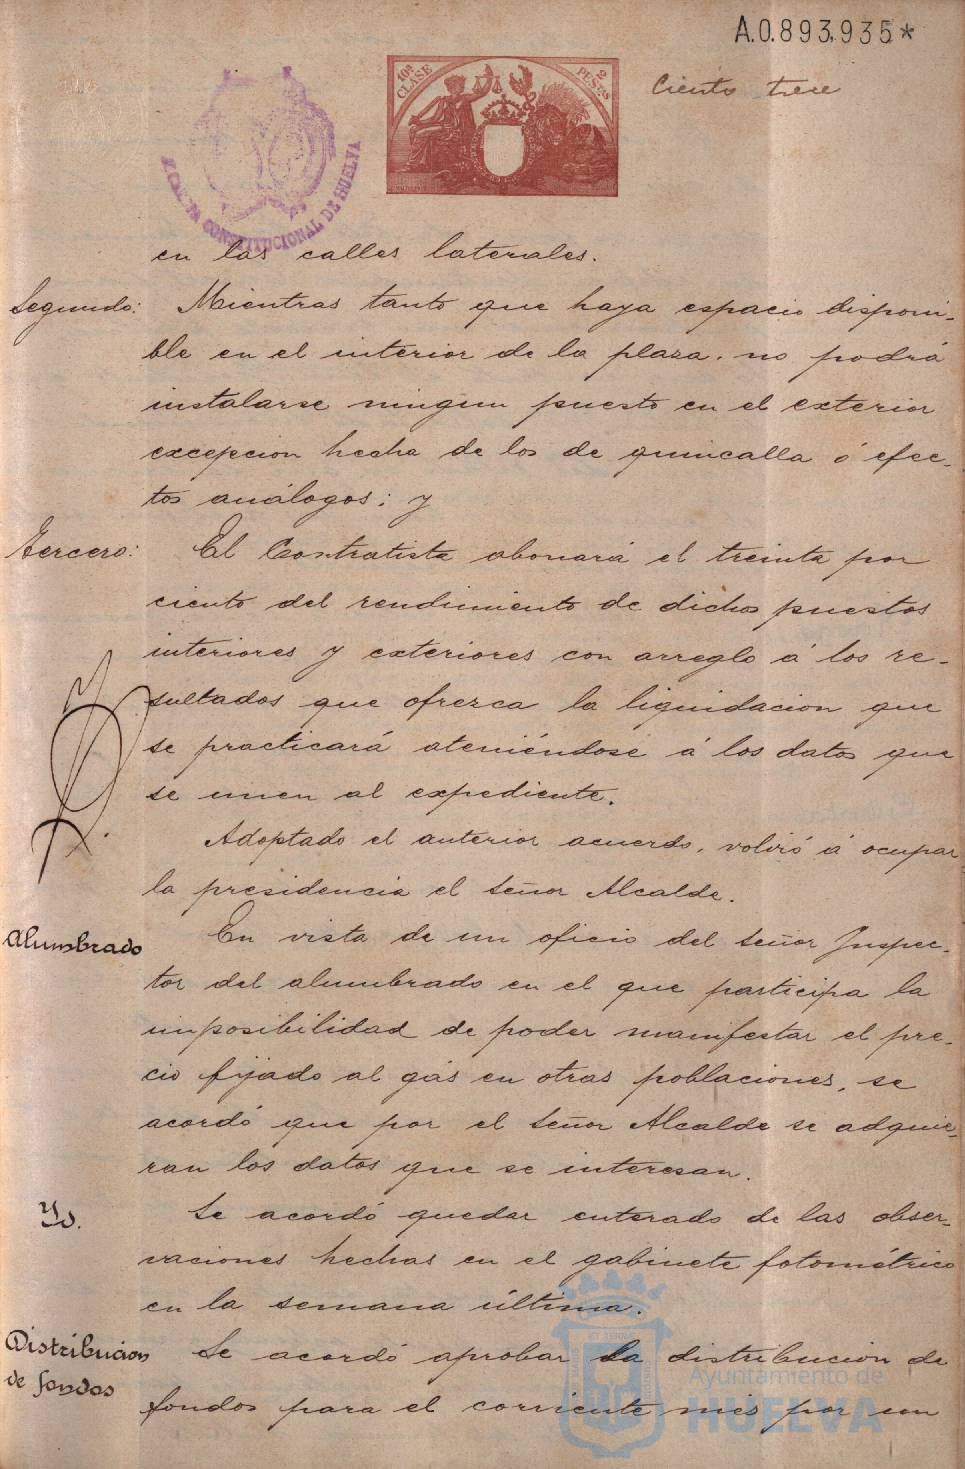 A.0.893,935*
10ª CLASE
2 PESTAS
Ciento trece
CONSTITUCIONAL DE HUELVA
en las calles laterales.
Segundo: Mientras tanto que haya espacio disponi-
ble en el interior de la plaza, no podrá
instalarse ningun puesto en el exterior
excepcion hecha de los de quincalla ó efec-
tos análogos; y
Tercero: El Contratista abonará el treinta por
ciento del rendimiento de dichos puestos
interiores y exteriores con arreglo á los re-
sultados que ofrezca la liquidacion que
se practicará ateniéndose á los datos que
se unen al expediente.
Adoptado el anterior acuerdo, volvió á ocupar
la presidencia el Señor Alcalde.
Alumbrado En vista de un oficio del Señor Inspec-
tor del alumbrado en el que participa la
imposibilidad de poder manifestar el pre-
cio fijado al gás en otras poblaciones, se
acordó que por el Señor Alcalde se adquie-
ran los datos que se interesan.
Yd. Se acordó quedar enterado de las obser-
vaciones hechas en el gabinete fotométrico
en la semana última.
Distribucion Se acordó aprobar la distribucion de
de fondos fondos para el corriente mes por un
Ayuntamiento de
HUELVA